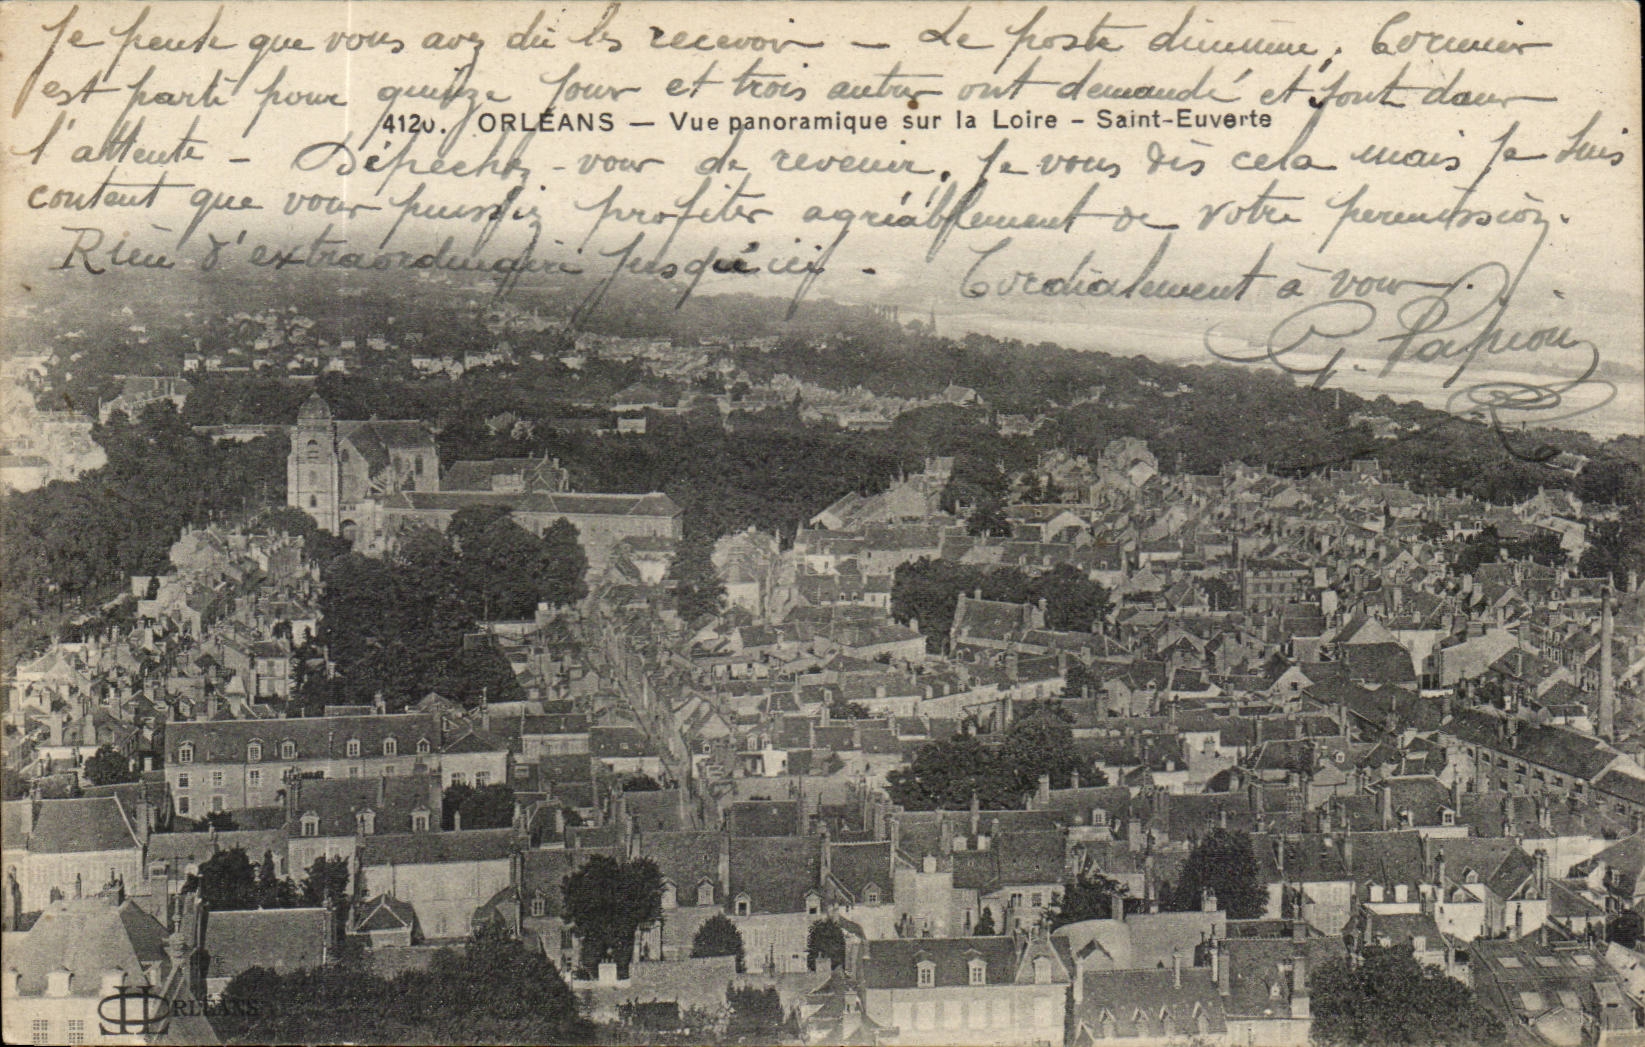 Je pense que vous avez dû les recevoir — Le poste diminue. Cormier
est parti pour quinze jours et trois autres ont demandé et sont dans
4120. ORLÉANS — Vue panoramique sur la Loire - Saint-Euverte
l'attente - Dépêchez-vous de revenir. Je vous dis cela mais je suis
content que vous puissiez profiter agréablement de votre permission.
Rien d'extraordinaire jusqu'ici. Cordialement à vous.
G. Papion
ORLÉANS